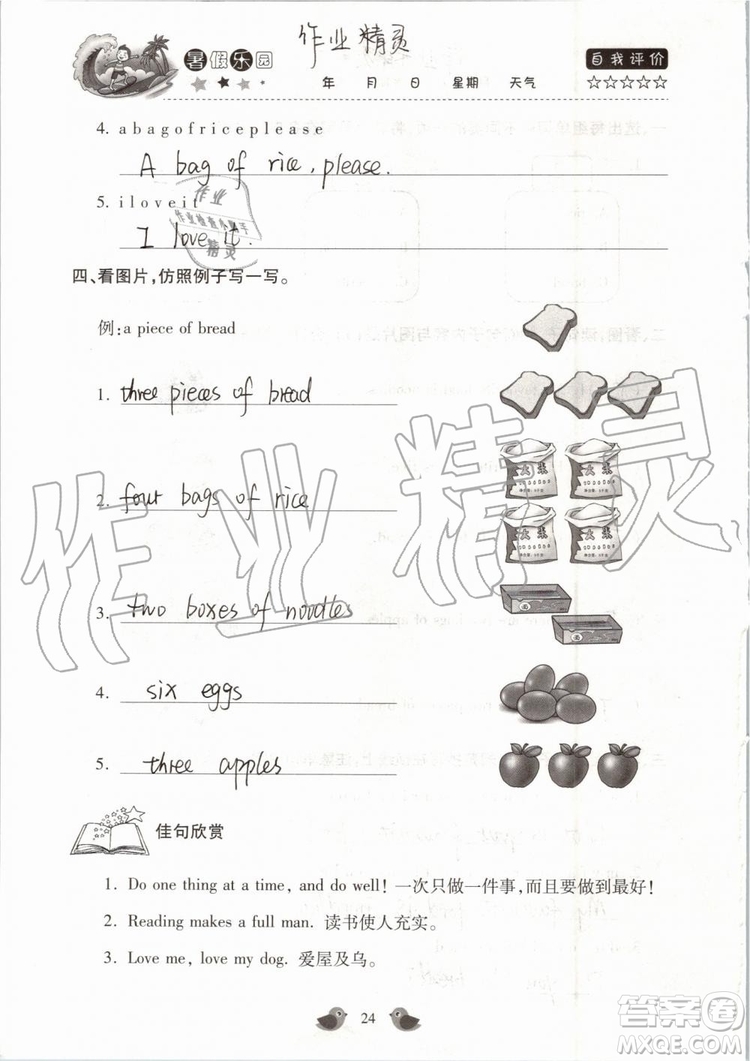 作业精灵
暑假乐园
自我评价
年 月 日 星期 天气
☆☆☆☆☆
4. a b a g o f r i c e p l e a s e
A bag of rice, please.
5. i l o v e i t
I love it.
作业
作业检查小帮手
精灵
四、看图片，仿照例子写一写。
例：a piece of bread
1. three pieces of bread
2. four bags of rice
大米 大米
大米 大米
3. two boxes of noodles
面
面
4. six eggs
5. three apples
作业精灵
佳句欣赏
1. Do one thing at a time, and do well! 一次只做一件事，而且要做到最好！
2. Reading makes a full man. 读书使人充实。
3. Love me, love my dog. 爱屋及乌。
24
答案圈
MXQE.COM